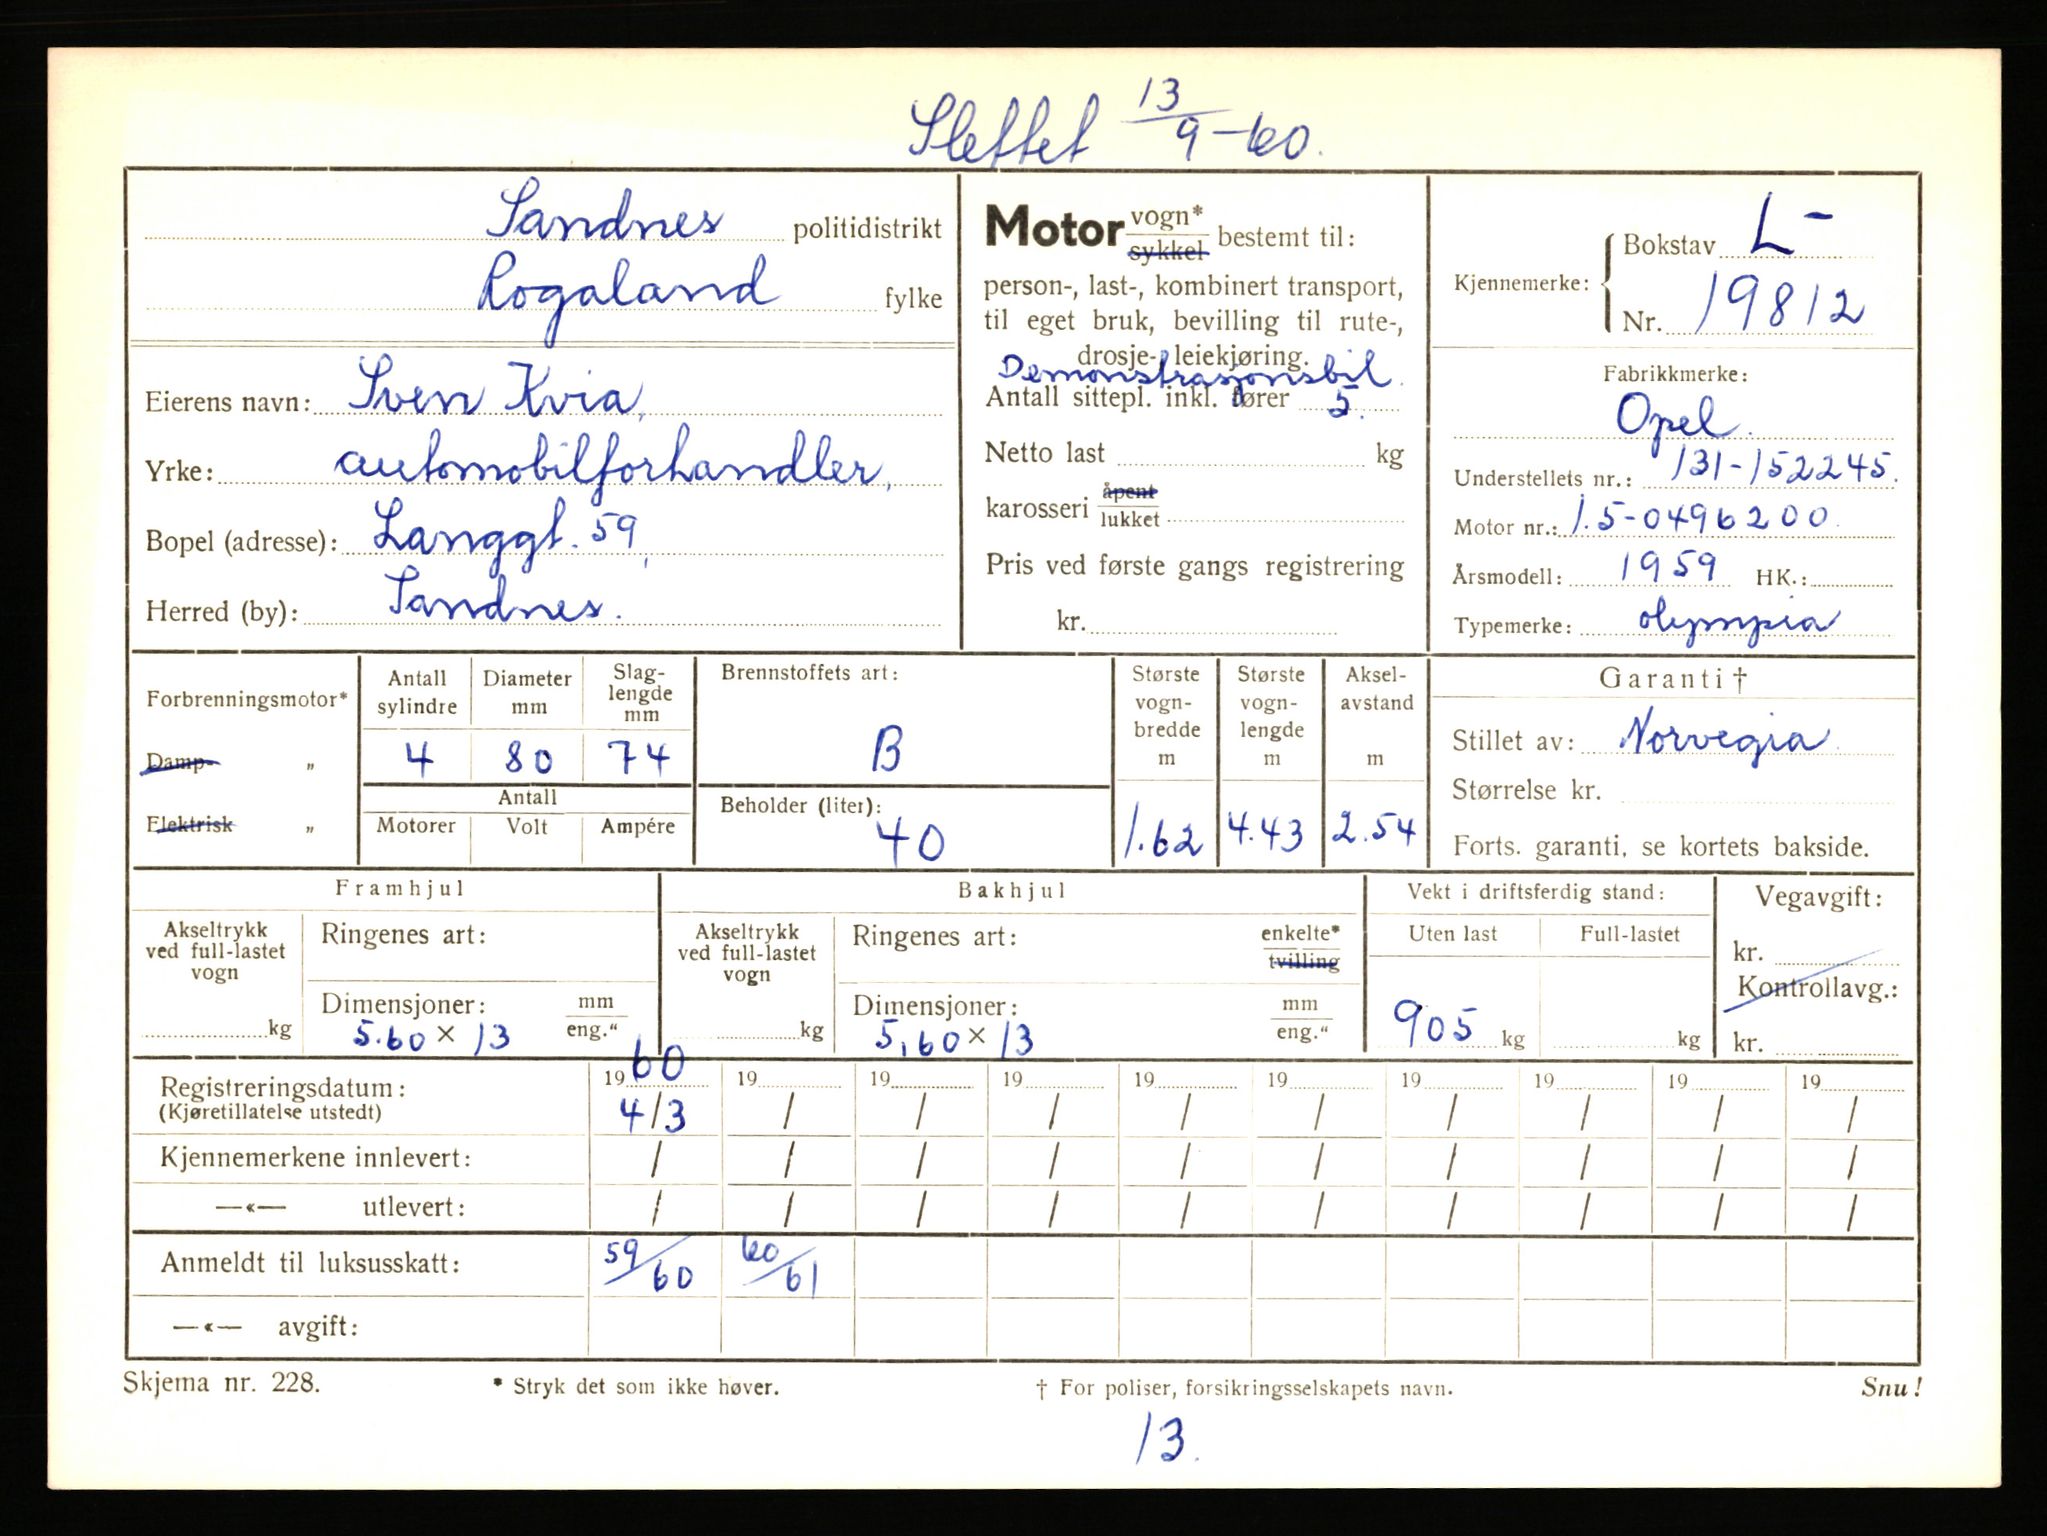 Slettet 13/9-60.
Sandnes politidistrikt
Rogaland fylke
Eierens navn: Sven Kvia,
Yrke: automobilforhandler,
Bopel (adresse): Langgt. 59,
Herred (by): Sandnes.
Motor vogn* sykkel bestemt til:
person-, last-, kombinert transport,
til eget bruk, bevilling til rute-,
drosje- leiekjøring.
Demonstrasjonsbil.
Antall sittepl. inkl. fører 5.
Netto last kg
karosseri åpent lukket
Pris ved første gangs registrering
kr.
Kjennemerke: Bokstav L-
Nr. 19812
Fabrikkmerke:
Opel.
Understellets nr.: 131-152245.
Motor nr.: 1.5-0496200.
Årsmodell: 1959 HK.:
Typemerke: olympia
Forbrenningsmotor*
Damp- "
Elektrisk "
Antall sylindre
Diameter mm
Slag-lengde mm
4 80 74
Antall
Motorer Volt Ampére
Brennstoffets art:
B
Beholder (liter):
40
Største vogn-bredde m
1.62
Største vogn-lengde m
4.43
Aksel-avstand m
2.54
Garanti †
Stillet av: Norvegia.
Størrelse kr.
Forts. garanti, se kortets bakside.
Framhjul
Akseltrykk ved full-lastet vogn
kg
Ringenes art:
Dimensjoner: mm eng."
5.60 × 13
Bakhjul
Akseltrykk ved full-lastet vogn
kg
Ringenes art: enkelte* tvilling
Dimensjoner: mm eng."
5,60 × 13
Vekt i driftsferdig stand:
Uten last Full-lastet
905 kg kg
Vegavgift:
kr.
Kontrollavg.:
kr.
Registreringsdatum: 1960 19 19 19 19 19 19 19 19 19
(Kjøretillatelse utstedt) 4/3 / / / / / / / / /
Kjennemerkene innlevert: / / / / / / / / / /
—«— utlevert: / / / / / / / / / /
Anmeldt til luksusskatt: 59/60 60/61
—«— avgift:
Skjema nr. 228. * Stryk det som ikke høver. † For poliser, forsikringsselskapets navn. Snu!
13.